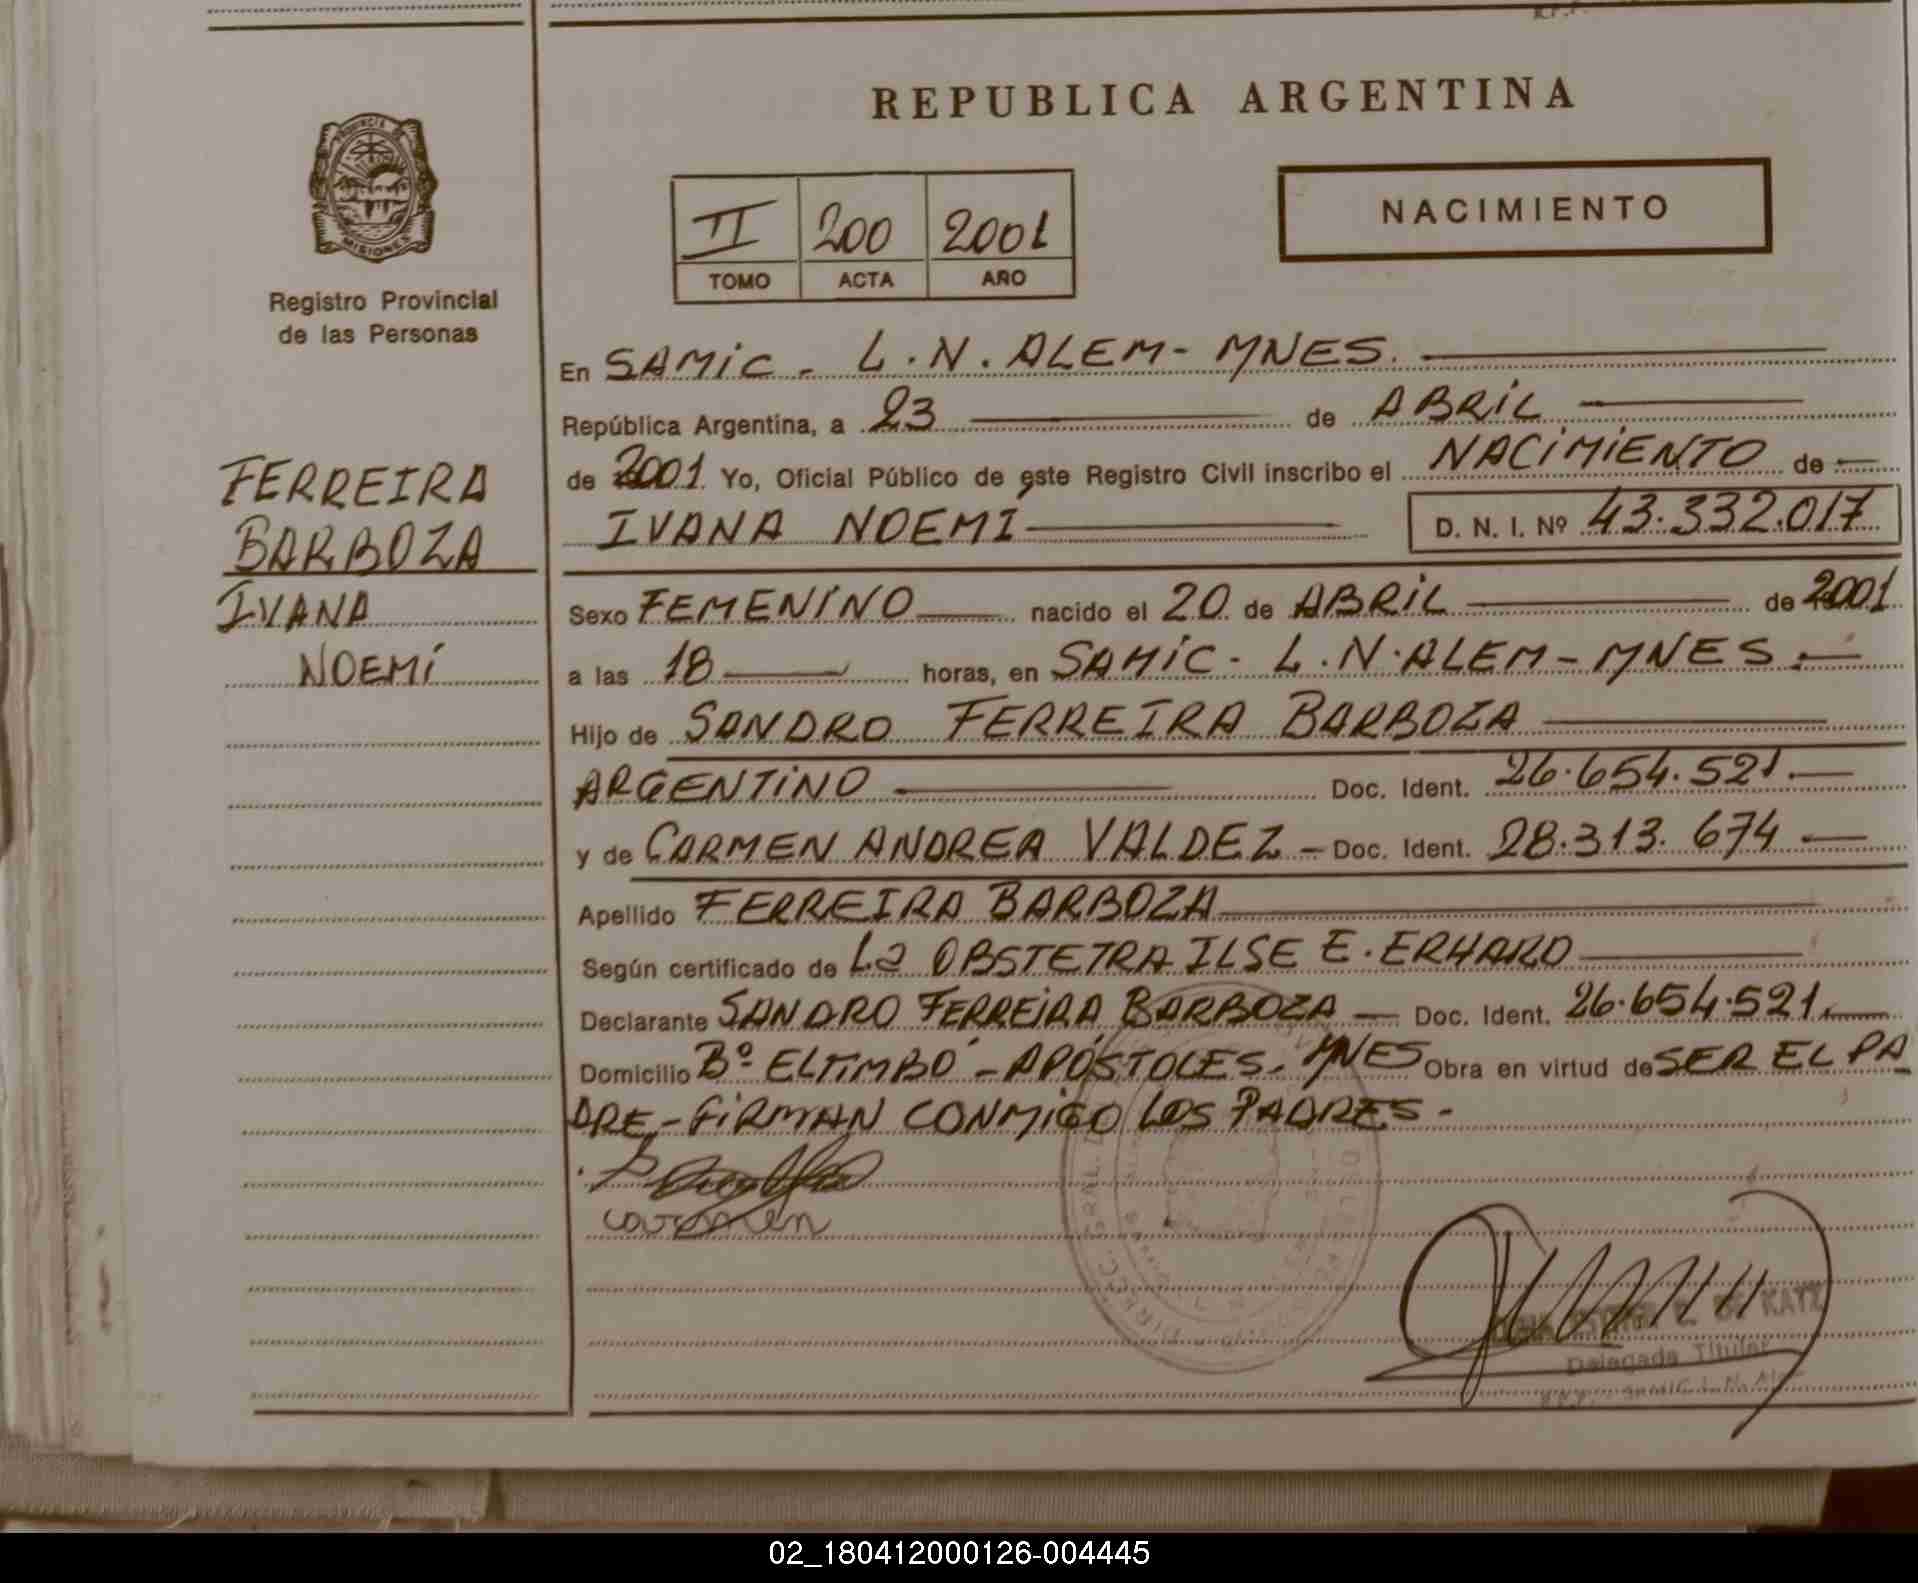 REPUBLICA ARGENTINA
PROVINCIA DE
MISIONES
Registro Provincial
de las Personas
II 200 2001
TOMO ACTA AÑO
NACIMIENTO
En SAMiC - L.N. ALEM - MNES.
República Argentina, a 23 de ABRiL
de 2001 Yo, Oficial Público de este Registro Civil inscribo el NACiMiENTO de
IVANA NOEMÍ D. N. I. Nº 43.332.017
FERREIRA
BARBOZA
IVANA
NOEMí
Sexo FEMENiNO nacido el 20 de ABRiL de 2001
a las 18 horas, en SAMiC - L.N. ALEM - MNES.
Hijo de SANDRO FERREIRA BARBOZA
ARGENTiNO Doc. Ident. 26.654.521.
y de CARMEN ANDREA VALDEZ - Doc. Ident. 28.313.674
Apellido FERREIRA BARBOZA
Según certificado de La OBSTETRA ILSE E. ERHARD
Declarante SANDRO FERREiRA BARBOZA - Doc. Ident. 26.654.521.
Domicilio Bº EL TiMBÓ - APÓSTOLES - MNES Obra en virtud de SER EL PA
DRE - FiRMAN CONMiGO LOS PADRES -
carmen
DE KATZ
Delegada Titular
02_180412000126-004445